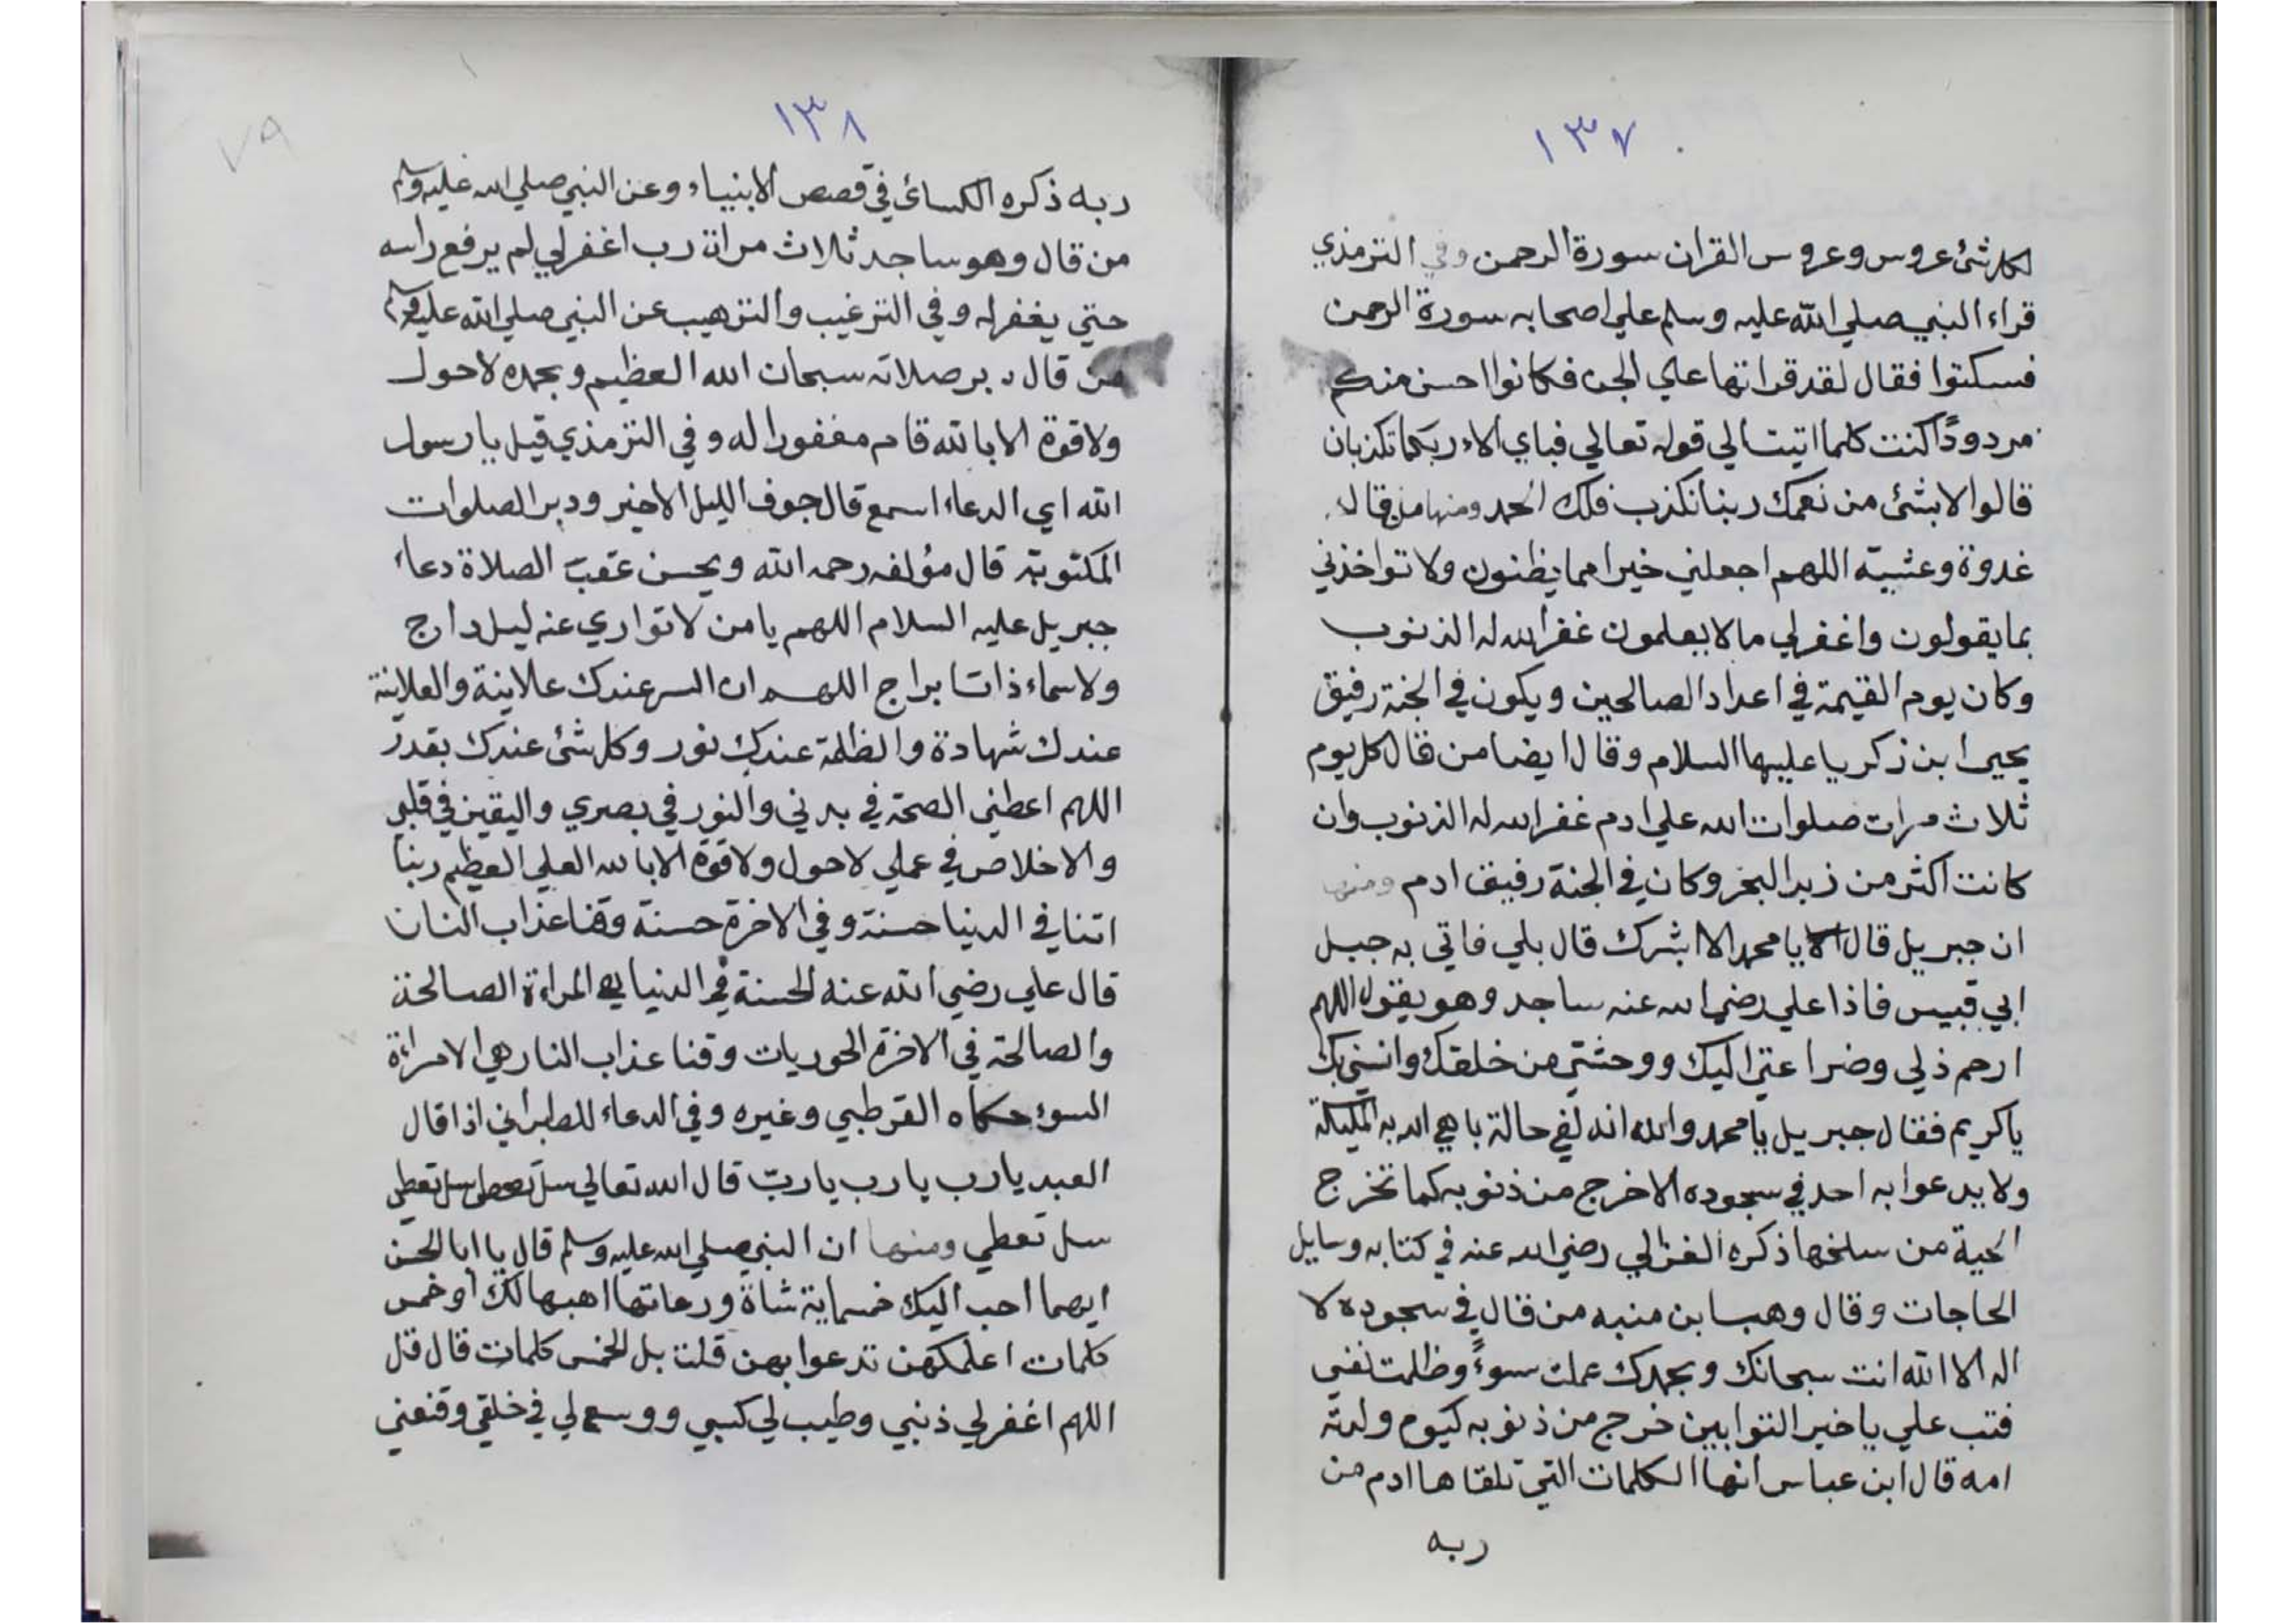 ١٣٧
لكل شئ عروس وعروس القران سورة الرحمن وفي الترمذي
قراء النبي صلي الله عليه وسلم علي اصحابه سورة الرحمن
فسكتوا فقال لقد قراتها علي الجن فكانوا احسن منكم
مردودًا كنت كلما اتيت الي قوله تعالي فباي الاء ربكما تكذبان
قالوا لا بشئ من نعمك ربنا نكذب فلك الحمد ومنها من قال
غدوة وعشية اللهم اجعلني خيرا مما يظنون ولا تواخذني
بما يقولون واغفر لي ما لا يعلمون غفر الله له الذنوب
وكان يوم القيمة في اعداد الصالحين ويكون في الجنة رفيق
يحيى ابن زكريا عليهما السلام وقال ايضا من قال كل يوم
ثلاث مرات صلوات الله علي ادم غفر الله له الذنوب وان
كانت اكثر من زبد البحر وكان في الجنة رفيق ادم ومنها
ان جبريل قال يا محمد الا ابشرك قال بلي فاتي به جبل
ابي قبيس فاذا علي رضي الله عنه ساجد وهو يقول اللهم
ارحم ذلي وضراعتي اليك ووحشتي من خلقك وانسني بك
يا كريم فقال جبريل يا محمد والله انه لفي حالة باهي الله به المليكة
ولا يدعوا به احد في سجوده الا خرج من ذنوبه كما تخرج
الحية من سلخها ذكره الغزالي رضي الله عنه في كتابه وسايل
الحاجات وقال وهب ابن منبه من قال في سجوده لا
اله الا الله انت سبحانك وبحمدك عملت سوءً وظلمت نفسي
فتب علي يا خير التوابين خرج من ذنوبه كيوم ولدته
امه قال ابن عباس انها الكلمات التي تلقاها ادم من
ربه
١٣٨
٧٩
ربه ذكره الكسائى في قصص الانبياء وعن النبي صلي الله عليه وسلم
من قال وهو ساجد ثلاث مرات رب اغفر لي لم يرفع راسه
حتي يغفر له وفي الترغيب والترهيب عن النبي صلي الله عليه وسلم
من قال دبر صلاته سبحان الله العظيم وبحمده لا حول
ولا قوة الا بالله قام مغفورا له وفي الترمذي قيل يا رسول
الله اي الدعاء اسمع قال جوف الليل الاخير ودبر الصلوات
المكتوبة قال مؤلفه رحمه الله ويحسن عقب الصلاة دعاء
جبريل عليه السلام اللهم يا من لا تواري عنه ليل داج
ولا سماء ذات ابراج اللهم ان السر عندك علانية والعلانية
عندك شهادة والظلمة عندك نور وكل شئ عندك بقدر
اللهم اعطني الصحة في بدني والنور في بصري واليقين في قلبي
والاخلاص في عملي لا حول ولا قوة الا بالله العلي العظيم ربنا
اتنا في الدنيا حسنة وفي الاخرة حسنة وقنا عذاب النار
قال علي رضي الله عنه الحسنة في الدنيا هي المراءة الصالحة
والصالحة في الاخرة الحوريات وقنا عذاب النار هي الامراءة
السوء حكاه القرطبي وغيره وفي الدعاء للطبراني اذا قال
العبد يا رب يا رب يا ربّ قال الله تعالي سل تعطى سل تعطى
سل تعطي ومنها ان النبي صلي الله عليه وسلم قال يا ابا الحسن
ايهما احب اليك خمسماية شاة ورعاتها اهبها لك او خمس
كلمات اعلمكهن تدعوا بهن قلت بل الخمس كلمات قال قل
اللهم اغفر لي ذنبي وطيب لي كسبي ووسع لي في خلقي وقنعني